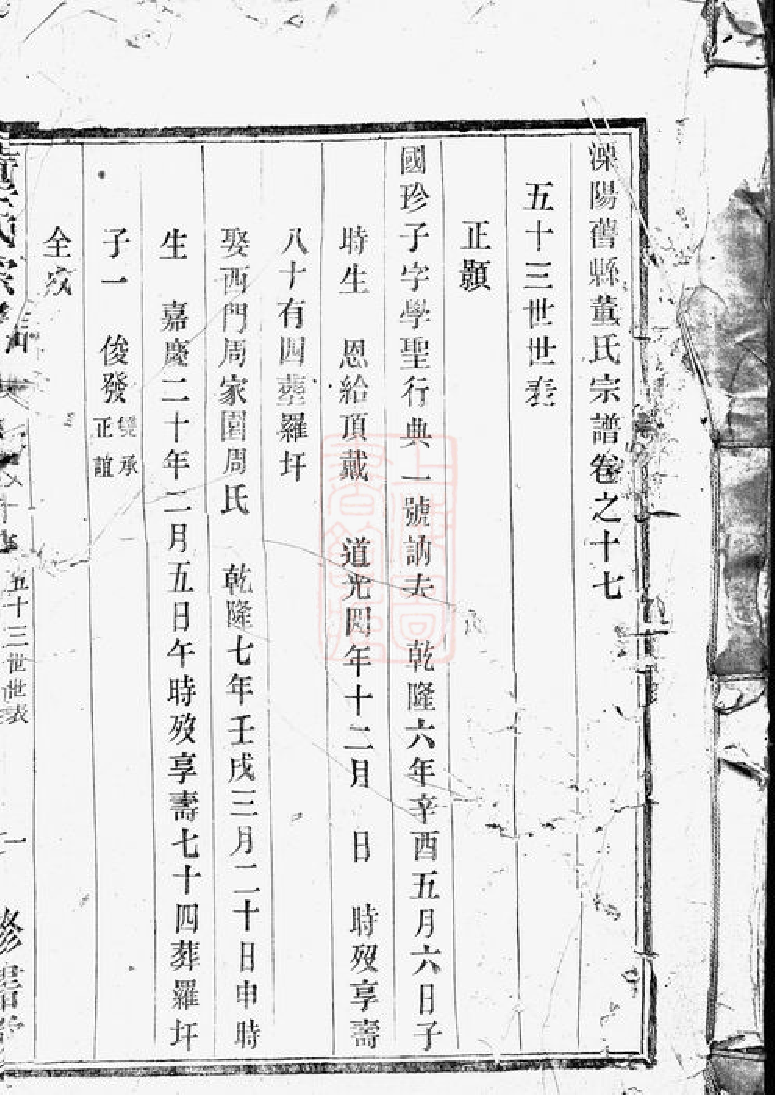 溧陽舊縣董氏宗譜卷之十七
五十三世世表
正顥
國珍子字學聖行典一號訥夫　乾隆六年辛酉五月六日子
時生　恩給頂戴　道光四年十二月　日　時歿享壽
八十有四葬羅圩
娶西門周家園周氏　乾隆七年壬戌三月二十日申時
生　嘉慶二十年二月五日午時歿享壽七十四葬羅圩
子一　俊發
雙承
正誼
全
董氏宗譜
五十三世世表
一